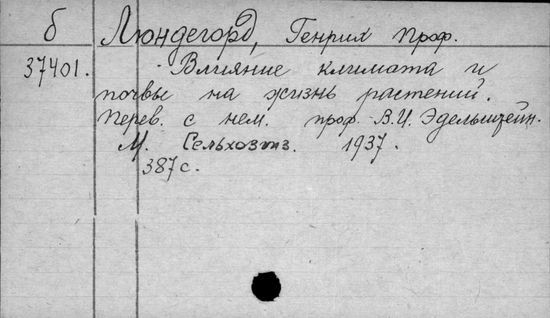 б Люндегорд, Генрих проф.
37401. Влияние климата и
почвы на жизнь растений.
Перев. с нем. проф. В.И. Эдельштейн.
М. Сельхозгиз. 1937.
387 с.